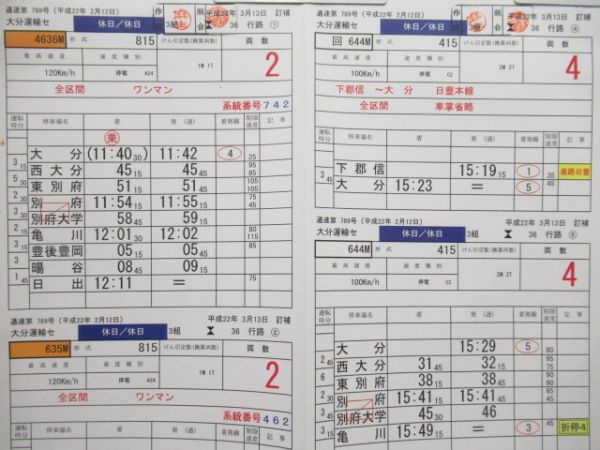 通達第 789号(平成22年 2月12日)
平成22年 3月13日 訂補
大分運輸セ 休日/休日 36 行路①
4636M 形式 815 けん引定数(換算両数) 両数
最高速度 速度種別 1M 1T 2
120Km/h 停電 A24
全区間 ワンマン
系統番号742
運転時分 停車場名 着 発(通) 着発線 制限速度 記事
乗
大分 (11:40 30) 11:42 ④ 25
3 15 西大分 45 15 45 45
東別府 51 15 51 45
別府 11:54 15 11:55 15
別府大学 58 45 59 15
亀川 12:01 30 12:02
豊後豊岡 05 15 05 45
暘谷 08 45 09 15
1 45 日出 12:11 =
通達第 789号(平成22年 2月12日)
平成22年 3月13日 訂補
大分運輸セ 休日/休日 3組 36 行路②
635M 形式 815 けん引定数(換算両数) 両数
最高速度 速度種別 1M 1T 2
120Km/h 停電 A24
全区間 ワンマン
系統番号462
運転時分 停車場名 着 発(通) 着発線 制限速度 記事
通達第 789号(平成22年 2月12日)
平成22年 3月13日 訂補
大分運輸セ 休日/休日 36 行路④
回 644M 形式 415 けん引定数(換算両数) 両数
最高速度 速度種別 2M 2T 4
100Km/h 停電 C2
下郡信 ~大分 日豊本線
全区間 車掌省略
運転時分 停車場名 着 発(通) 着発線 制限速度 記事
下郡信 15:19 15 ① 35 進路日豊
3 45 大分 15:23 = ⑤ 45
通達第 789号(平成22年 2月12日)
平成22年 3月13日 訂補
大分運輸セ 休日/休日 3組 36 行路⑤
644M 形式 415 けん引定数(換算両数) 両数
最高速度 速度種別 2M 2T 4
100Km/h 停電 C2
運転時分 停車場名 着 発(通) 着発線 制限速度 記事
大分 15:29 ⑤
2 45 西大分 31 45 32 15
6 東別府 38 15 38 45
別府 15:41 15 15:41 45
別府大学 45 30 46
3 15 亀川 15:49 15 = ③ 45 折停4